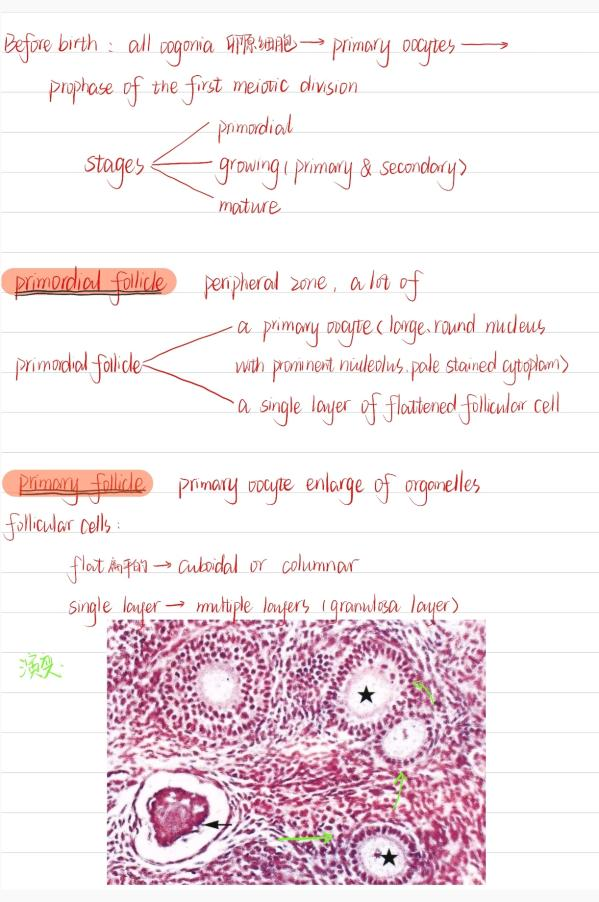 Before birth : all oogonia 卵原细胞 → primary oocytes →
prophase of the first meiotic division
primordial
stages growing ( primary & secondary )
mature
primordial follicle peripheral zone , a lot of
a primary oocyte ( large、round nucleus
primordial follicle with prominent nucleolus. pale stained cytoplam )
a single layer of flattened follicular cell
primary follicle primary oocyte enlarge of organelles
follicular cells :
flat 扁平的 → cuboidal or columnar
single layer → multiple layers ( granulosa layer )
演变: